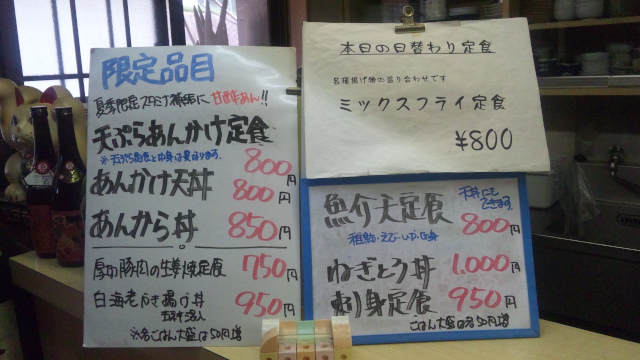 限定品目
夏季限定 甘酢あん!!
天ぷらあんかけ定食
※天ぷら定食と中身は異なります。
800円
あんかけ天丼 800円
あんから丼 850円
厚切豚肉の生姜焼定食 750円
白海老かき揚げ丼 950円
※各ごはん大盛は50円増
本日の日替わり定食
各種揚げ物の盛り合わせです
ミックスフライ定食
¥800
魚介天定食 800円
天丼にもできます。
稚鮎・えび・いか・白身
ねぎとろ丼 1,000円
刺身定食 950円
ごはん大盛は50円増